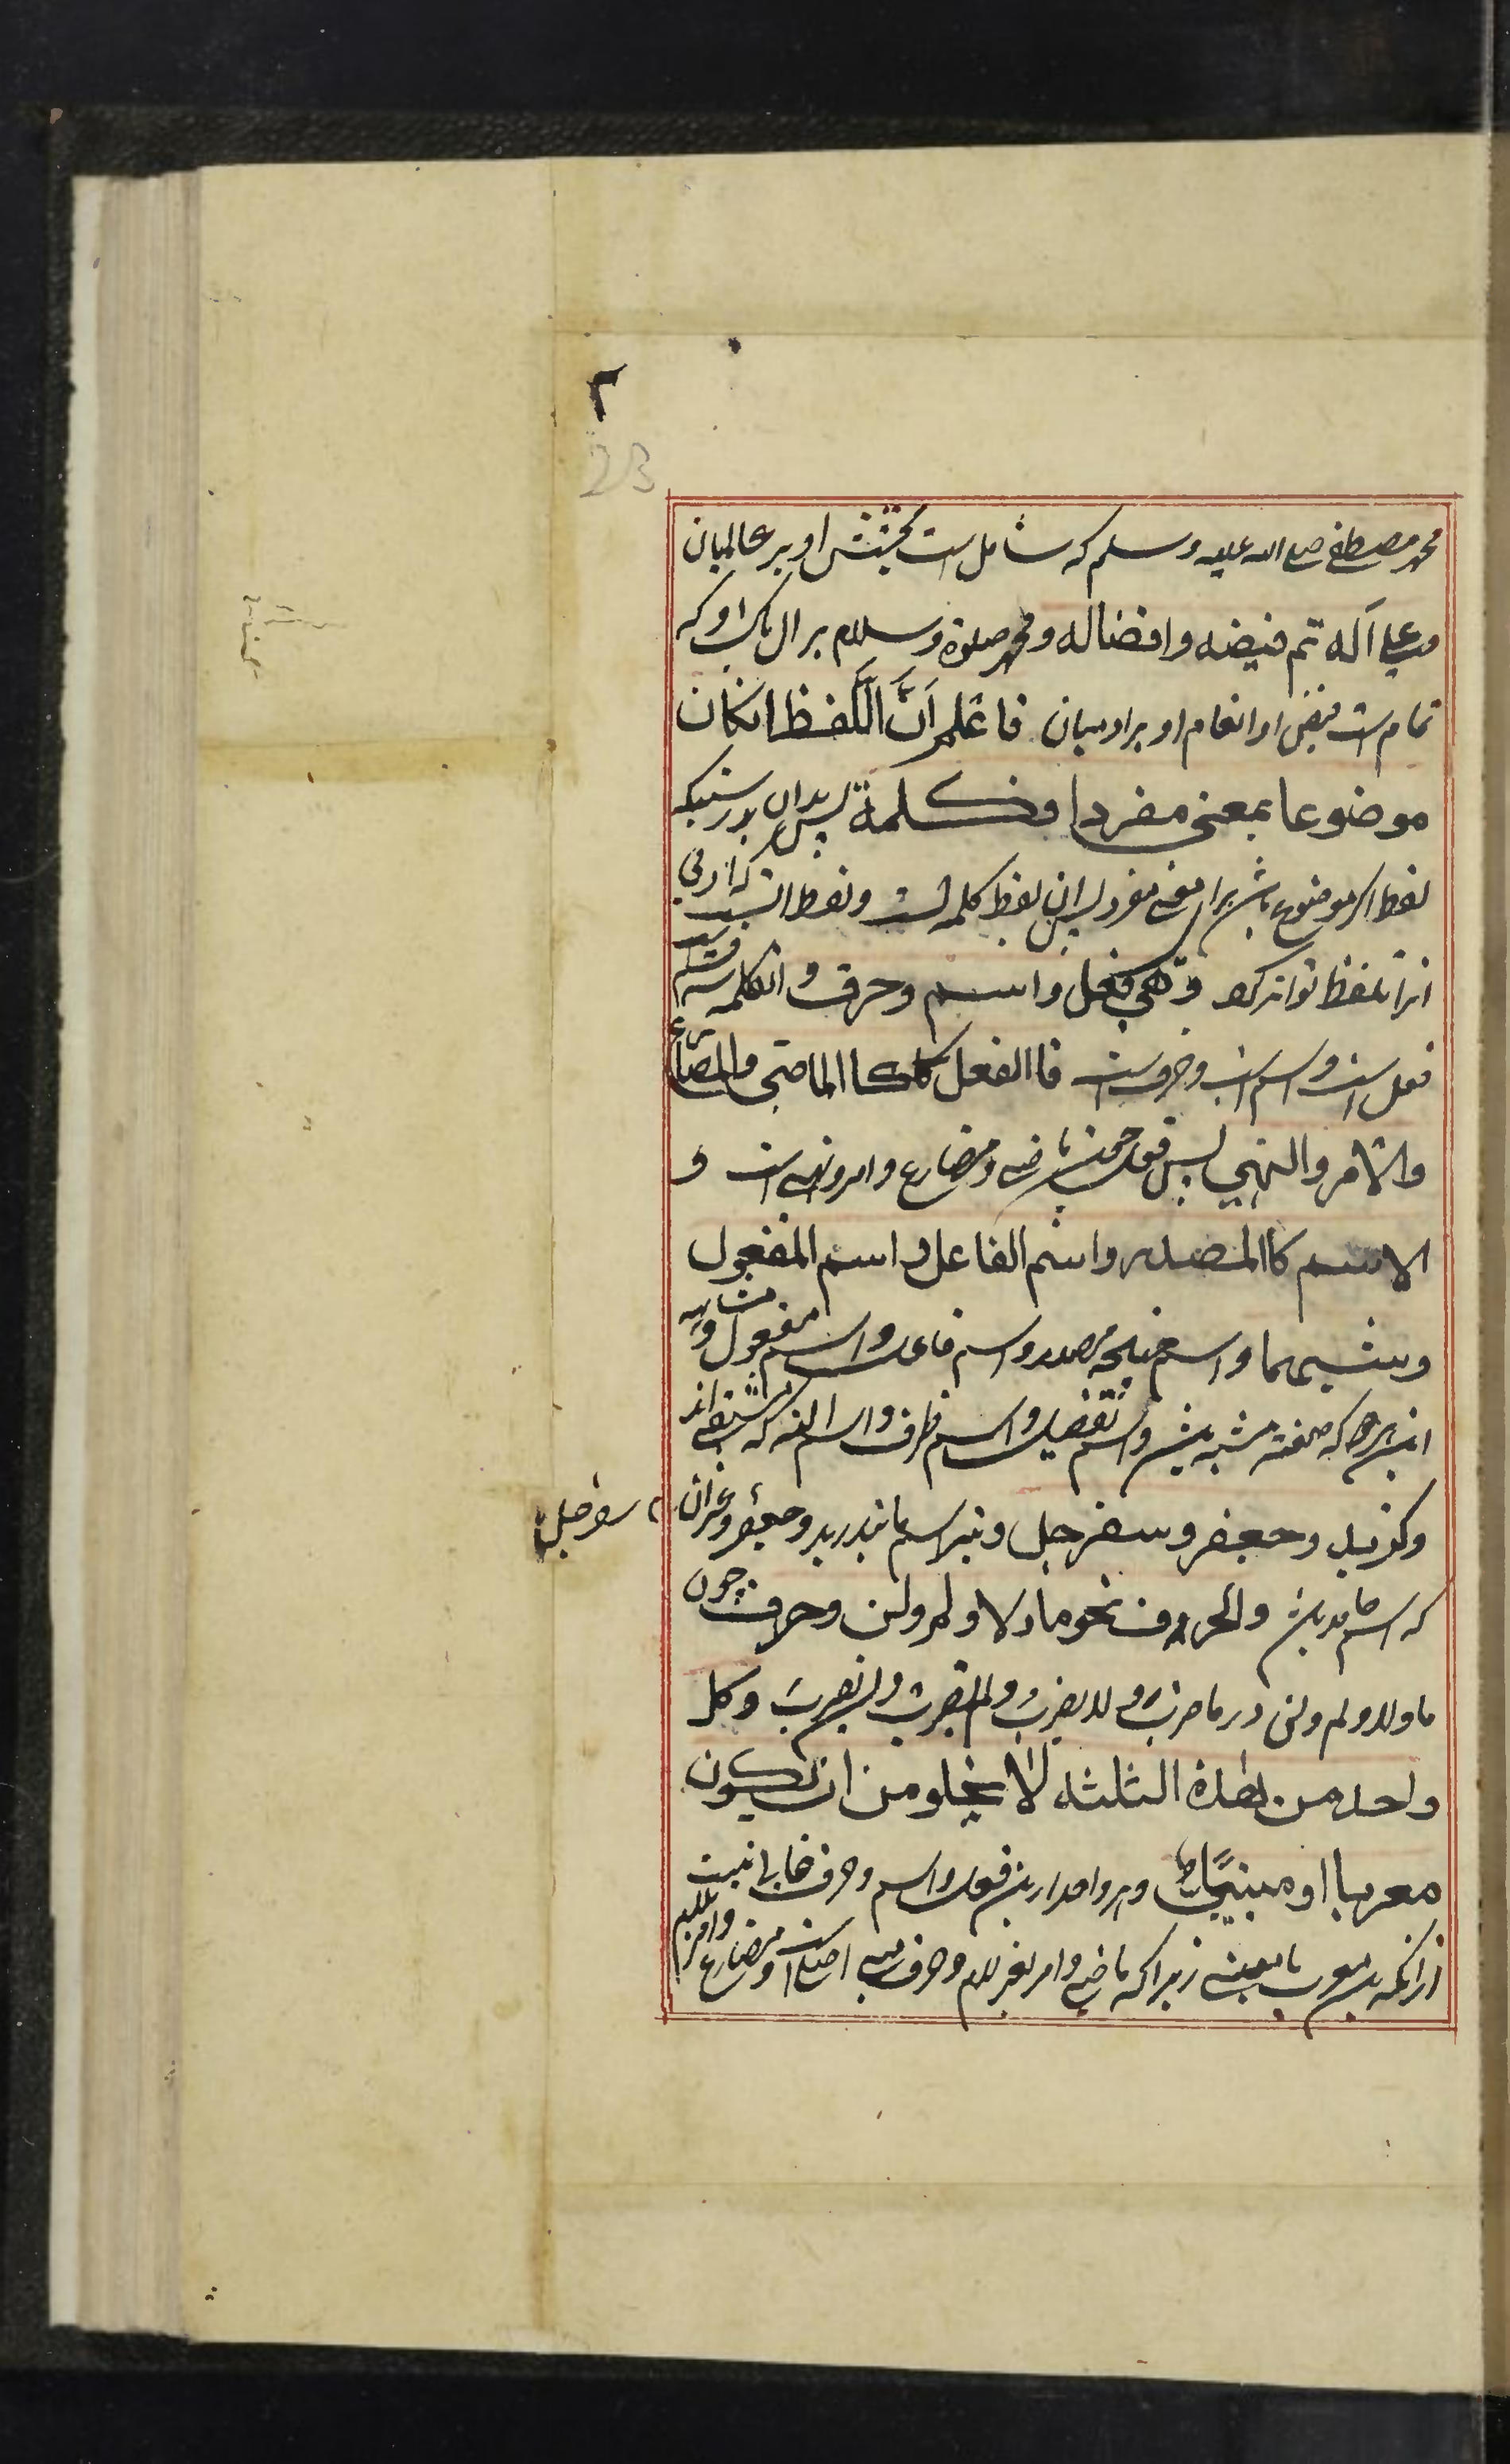 ۲
23
محمد مصطفی صلی الله علیه وسلم که شامل است بخشش او بر عالمیان
وعلی آله تم فیضه وافضاله ومحمد صلوة وسلام بر ال پاک او که
تمام است فیض او انعام او بر ادمیان فاعلم اَنَّ اللَّفظ انکان
موضوعا بمعنی مفردا فکلمة پس بدان بدرستیکه
لفظ اکر موضوع باشد برای معنی مفرد پس ان لفظ کلمه است ولفظ انست که ادمی
انرا تلفظ تواند کرد وهي فعل واسم وحرف و انکلمه سه قسم است
فعل است واسم است وحرف است فاالفعل کاالماضی والمضارع
والامر والنهي پس فعل چون ماضی ومضارع وامر ونهی است و
الاسم کاالمصدر واسم الفاعل واسم المفعول
وشبههما واسم همچو مصدر واسم فاعل واسم مفعول ومشابه
این هر دو که صفت مشبه باشد واسم تفضیل واسم ظرف واسم اله که مشتق اند
وکزید وجعفر وسفرجل ونیز اسم مانند زید وجعفر وعمران
سفرجل
که اسم جامد باشد والحروف نحو ما ولا ولم ولن وحرف چون
ما ولا ولم ولن در ما ضرب ولا یضرب ولم یضرب ولن یضرب وکل
واحد من هذه الثلثة لا یخلو من ان یکون
معربا او مبنیًّا وهر واحد ازین فعل واسم وحرف خالی نیست
از انکه یا معرب یا مبنی زیرا که ماضی وامر بغیر لام وحرف مبنی اصل است ومضارع وامر باللام